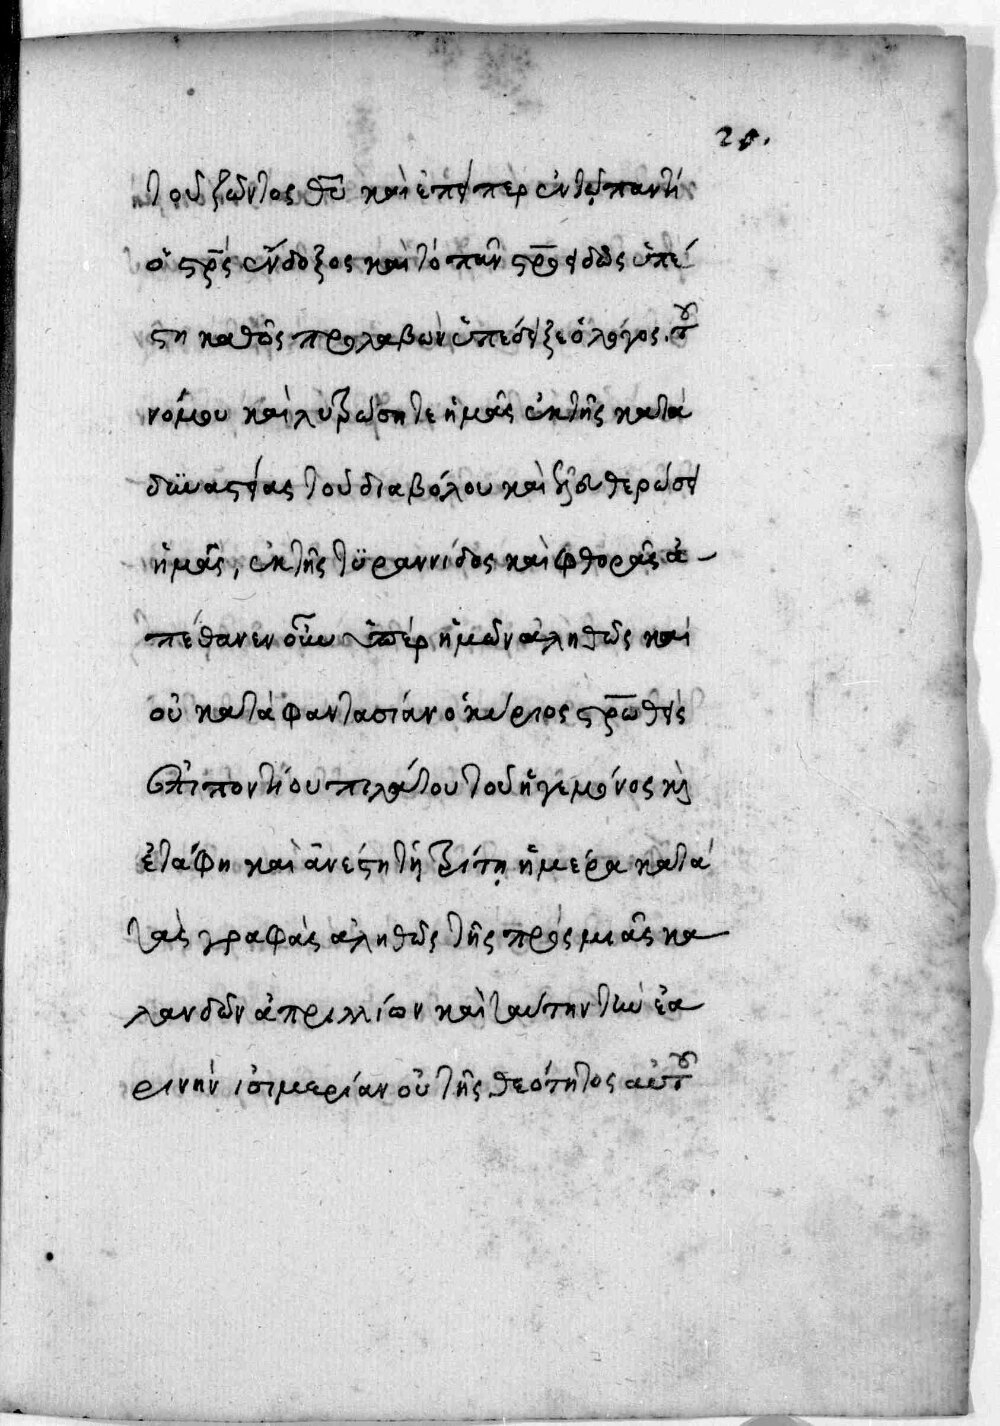 21.
τοῦ ζῶντος θῦ καὶ ἐπείπερ ἐν τῷ παντί
ὁ σρ̅ς ἔνδοξος καὶ τὸ πᾶν σρ̅οειδῶς ὑπέ
στη καθὸς προλαβὼν ὑπέδειξε ὁ λόγος. τοῦ
νόμου καὶ λυτρώσηται ἡμᾶς ἐκ τῆς κατα
δϋναστείας τοῦ διαβόλου καὶ ἐλευθερώσει
ἡμᾶς, ἐκ τῆς τϋραννίδος καὶ φθορᾶς ἀ-
πέθανεν οὖν ὑπὲρ ἡμῶν ἀληθῶς καὶ
οὐ κατὰ φαντασίαν ὁ κύριος σρ̅ωθεὶς
ἐπὶ ποντίου πιλάτου τοῦ ἡγεμόνος κὶ
ἐτάφη καὶ ἀνέστη τῇ τρίτῃ ἡμέρα κατὰ
τὰς γραφὰς ἀληθῶς τῆς πρὸς μιᾶς κα
λανδῶν ἀπριλλίων καὶ ταύτην τὴν ἐα
ρινὴν ισιμερίαν οὐ τῆς θεότητος αὐτοῦ